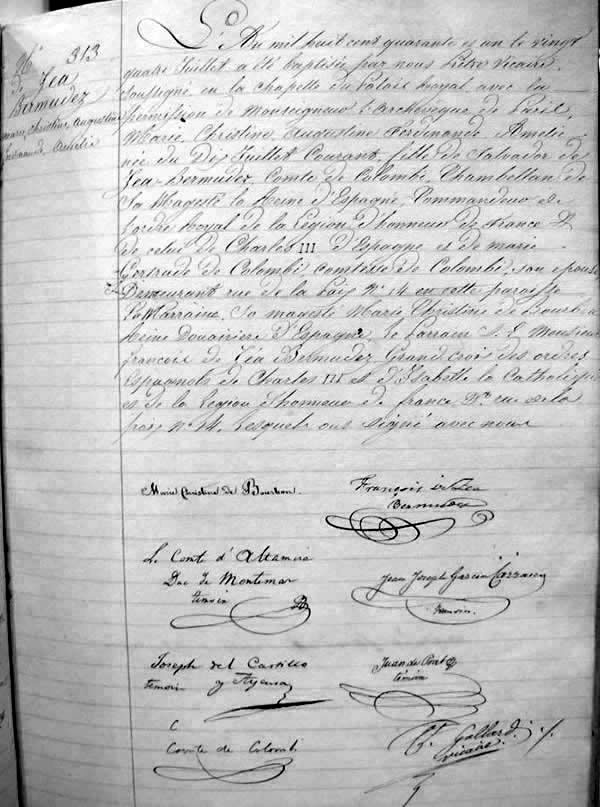 313
de
Zea
Bermudez
marie, christine, Augustine
ferdinande Amélie
L'An mil huit cent quarante et un le vingt
quatre Juillet a été baptisée par nous Prêtre Vicaire
soussigné en la chapelle du Palais Royal avec la
permission de Monseigneur l'Archevêque de Paris,
Marie, Christine Augustine Ferdinande Amélie
née du Dix Juillet Courant, fille de Salvador de
Zea-Bermudez, Comte de Colombi Chambellan de
Sa Magesté la Reine d'Espagne, Commandeur de
l'ordre Royal de la Légion d'honneur de France &
de celui de Charles III d'Espagne et de marie
Gertrude de Colombi comtesse de Colombi, son épouse
Demeurant rue de la Paix No 14 en cette paroisse
La Marraine, Sa magesté Marie Christine de Bourbon
Reine Douairière d'Espagne, le parrain S. E. Monsieur
françois de Zéa Bermudez Grand croix des ordres
Espagnols de Charles III et d'Isabelle la Catholique
et de la Légion d'honneur de france Dt rue de la
paix No 14, lesquels ont signé avec nous
Marie Christine de Bourbon
François de Zea
Bermudez
Le Comte d'Altamira
Duc de Montemar
témoin
Jean Joseph Garcia Carrasco
témoin.
Joseph del Castillo
témoin y Ayensa
Juan de Prat
témoin
C
Comte de Colombi
Gallard
vicaire